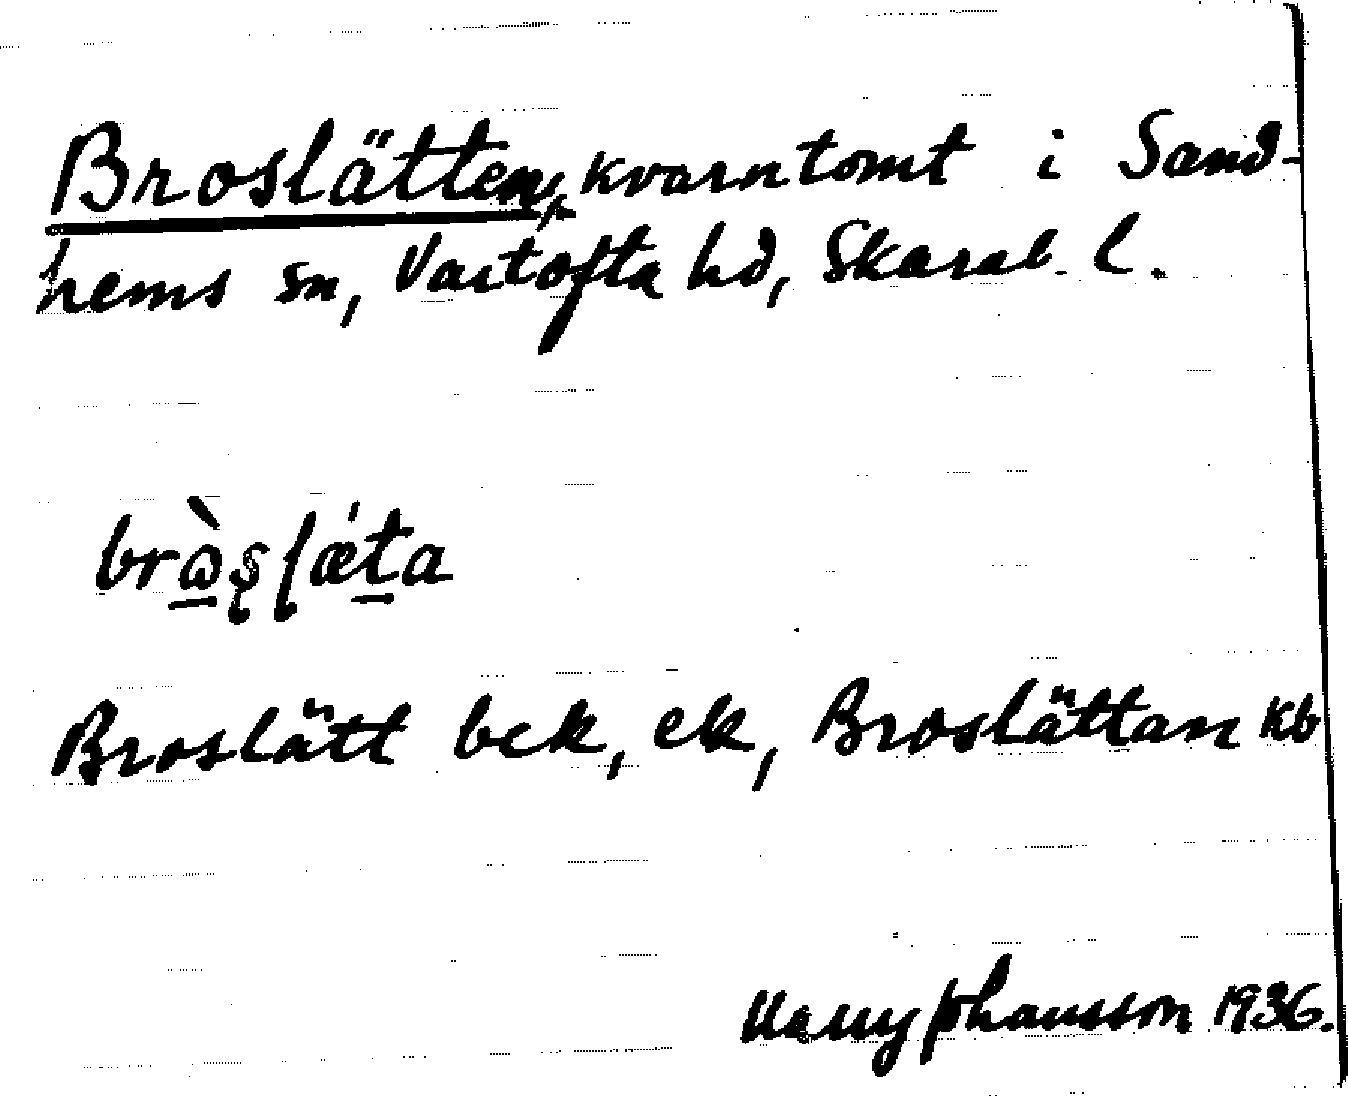 Broslätten, kvarntomt i Sand-
hems sn, Vartofta hd, Skarab. l.
brὼ̱ʂʃǽṯa
Broslätt bek, ek, Broslättan kb
Harry Johansson 1936.